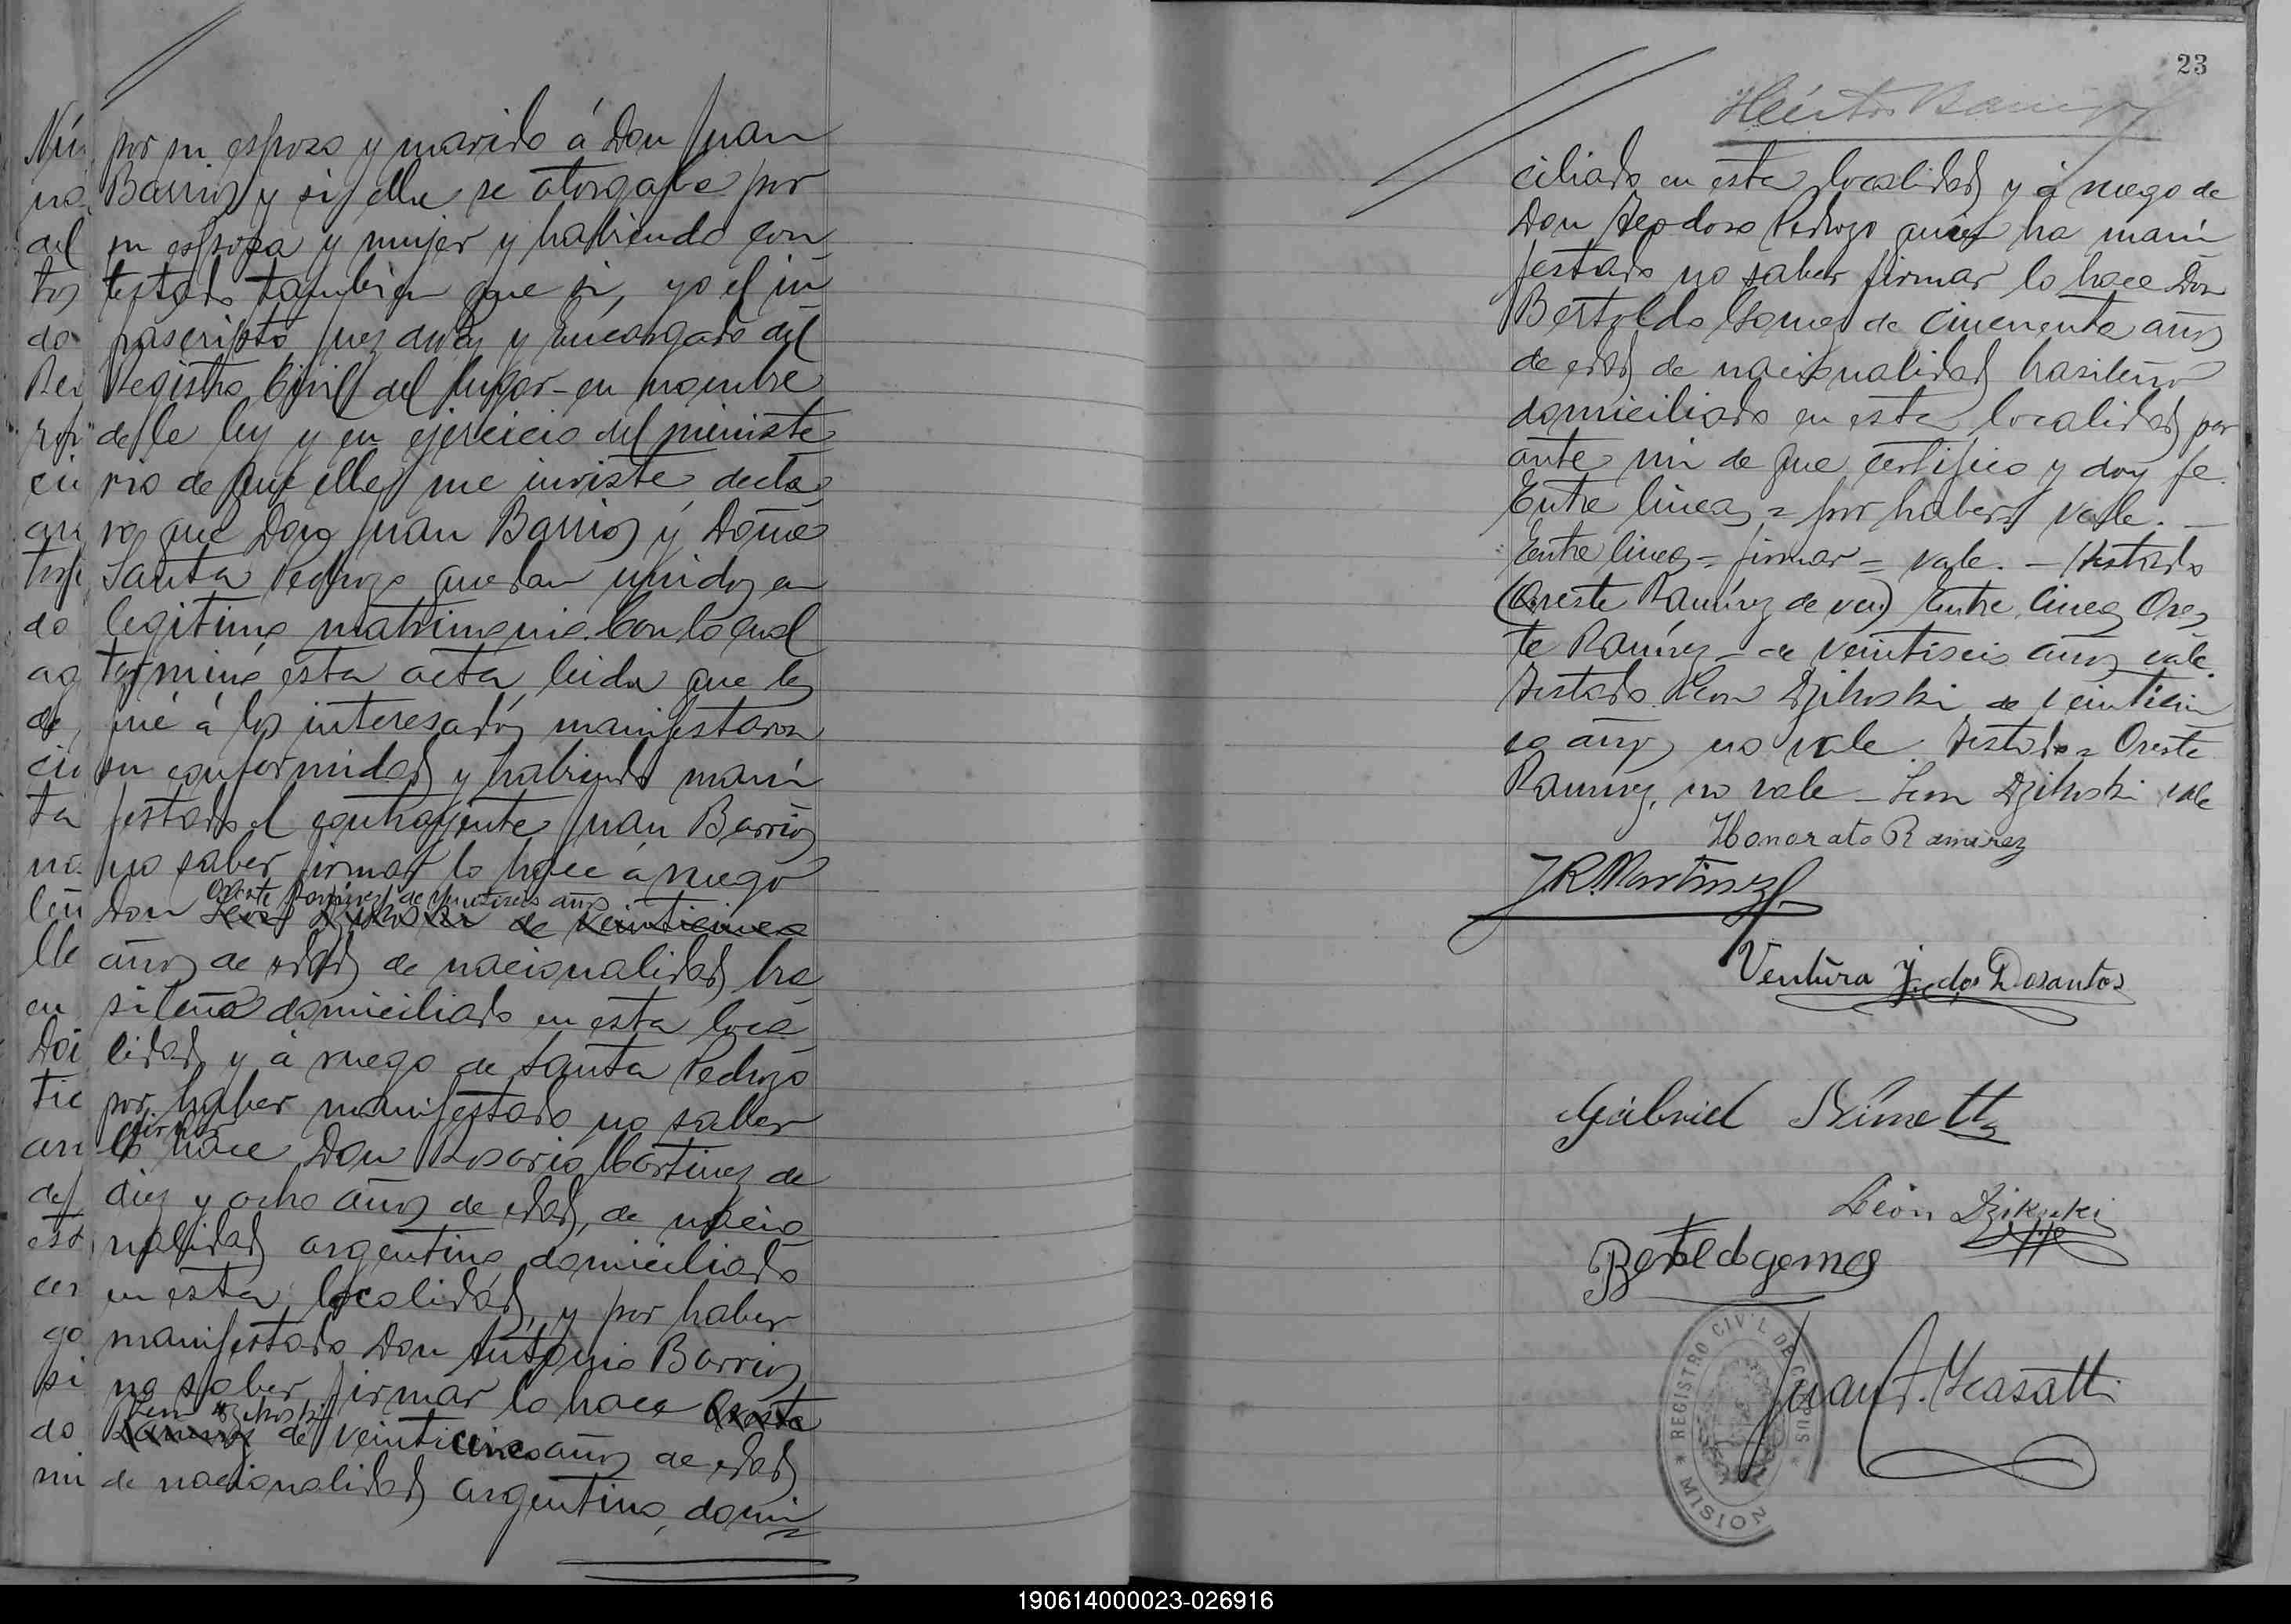 por su esposo y marido á Don Juan
Barrios y si ella se otorgaba por
su esposa y mujer y habiendo con
testado tambien que si, yo el in
frascripto Juez de Paz y Encargado del
Registro Civil del lugar - en nombre
de la ley y en ejercicio del ministe
rio de que ella me inviste decla
ro que Don Juan Barrios y Doña
Santa Pedrozo quedan unidos en
legitimo matrimonio. Con lo cual
terminó esta acta, leida que les
fué á los interesados manifestaron
su conformidad y habiendo mani
festado el contrayente Juan Barrios
no saber firmar lo hace á ruego
Oreste Ramírez de veintiseis años
Don Leon Dzikoski de veinticinco
años de edad de nacionalidad bra
sileña domiciliado en esta loca
lidad y á ruego de Santa Pedrozo
por haber manifestado no saber
firmar
lo hace Don Rosario Martinez de
diez y ocho años de edad, de nacio
nalidad argentina domiciliado
en esta localidad, y por haber
manifestado Don Antonio Barrios
no saber firmar lo hace Oreste
Leon Dzikoski
Ramirez de veinticinco años de edad
de nacionalidad argentina, domi
Nú
na
del
tos
do
Rei
cu
an
do
ag
de
cio
ta
no
len
lle
en
Doi
tie
an
del
est
cer
go
si
do
mi
23
Héctor Barrios
ciliado en esta localidad y á ruego de
Don Teodoro Pedrozo quien ha mani
festado no saber firmar lo hace Don
Bertoldo Gomez de cincuenta años
de edad de nacionalidad brasileño
domiciliado en esta localidad por
ante mi de que certifico y doy fe.
Entre lineas = por haber vale. —
Entre linea = firmar = vale. — Testado
(Oreste Ramírez de vein) Entre lineas Ores
te Ramírez - de veintiseis años vale.
Testado Leon Dzikoski de veinticin
co años no vale. Testado = Oreste
Ramírez, no vale — Leon Dzikoski vale
Honorato Ramirez
J R. Martinez
Ventura J. dos Dosantos
Gabriel
León Dzikoski
Bertoldo gomes
Juan F.
REGISTRO CIVIL DE CORPUS
MISIONES
190614000023-026916